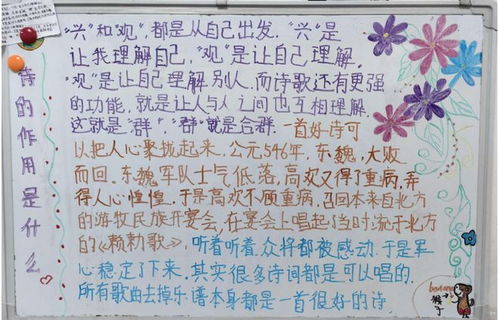 诗的作用是什么
“兴”和“观”,都是从自己出发.“兴”是
让我理解自己,“观”是让自己理解.
“观”是让自己理解别人.而诗歌还有更强
的功能,就是让人与人之间也互相理解
这就是“群”,“群”就是合群.一首好诗可
以把人心聚拢起来.公元546年,东魏,大败
而回.东魏军队士气低落,高欢又得了重病,弄
得人心惶惶.于是高欢不顾重病,召回本来自北方
的游牧民族开宴会,在宴会上唱起了当时流于北方
的《敕勒歌》.听着听着,众将都被感动.于是军
心稳定了下来.其实很多诗词都是可以唱的.
所有歌曲去掉乐谱本身都是一首很好的诗.
banana
猴子